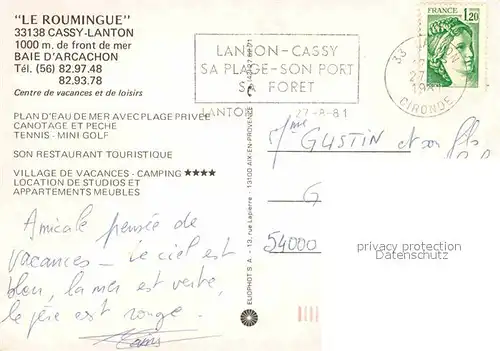 "LE ROUMINGUE"
33138 CASSY-LANTON
1000 m. de front de mer
BAIE D'ARCACHON
Tél. (56) 82.97.48
82.93.78
Centre de vacances et de loisirs
PLAN D'EAU DE MER AVEC PLAGE PRIVEE
CANOTAGE ET PECHE
TENNIS - MINI GOLF
SON RESTAURANT TOURISTIQUE
VILLAGE DE VACANCES - CAMPING ★★★★
LOCATION DE STUDIOS ET
APPARTEMENTS MEUBLES
Amicale pensée de
vacances - Le ciel est
bleu, la mer est verte,
le père est rouge.
LANTON-CASSY
SA PLAGE-SON PORT
SA FORET
LANTON 27-8-81
FRANCE
1,20
33
GIRONDE
ELIOPHOT S.A. - 13, rue Lapierre - 13100 AIX-EN-PROVENCE
Mme GUSTIN et son fils
G
54000
privacy protection
Datenschutz